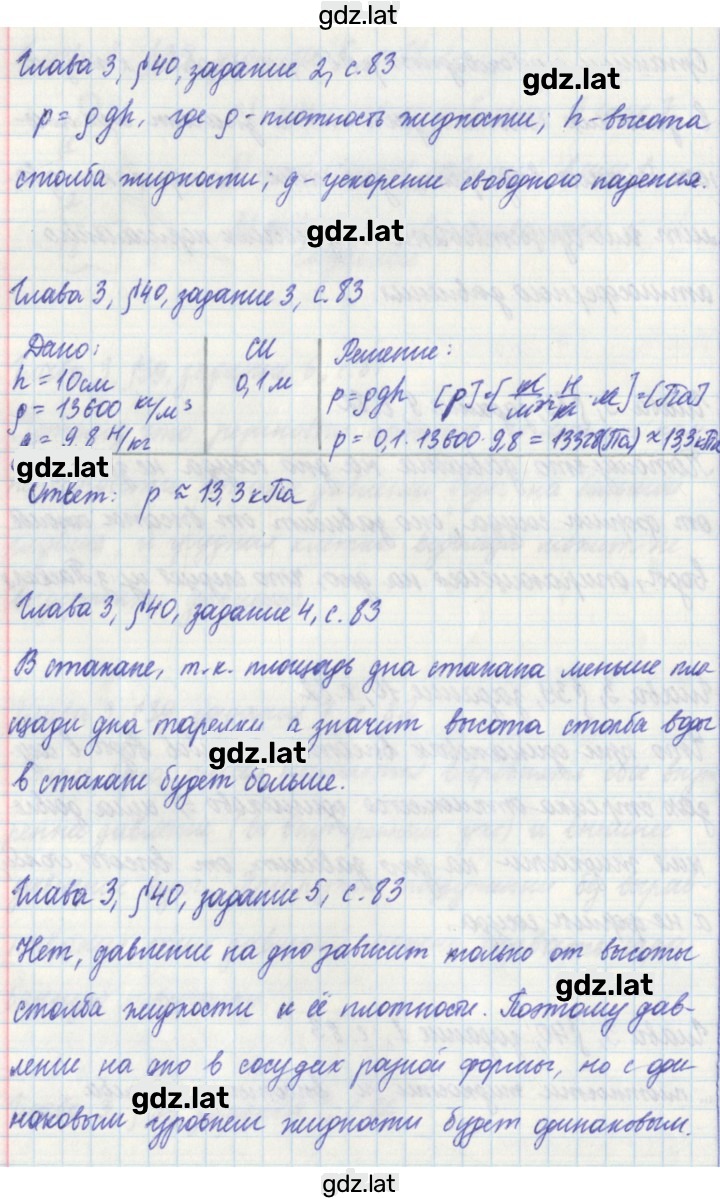 gdz.lat
Глава 3, §40, задание 2, с.83
gdz.lat
p = ρgh, где ρ - плотность жидкости; h - высота
столба жидкости; g - ускорение свободного падения.
gdz.lat
Глава 3, §40, задание 3, с.83
Дано: СИ Решение:
h = 10см 0,1м p = ρgh [p] = [кг/м³ · Н/кг · м] = [Па]
ρ = 13600 кг/м³
g = 9,8 Н/кг p = 0,1 · 13600 · 9,8 = 13328(Па) ≈ 13,3кПа
gdz.lat
Ответ: p ≈ 13,3 кПа
Глава 3, §40, задание 4, с.83
В стакане, т.к. площадь дна стакана меньше пло-
щади дна тарелки а значит высота столба воды
gdz.lat
в стакане будет больше.
Глава 3, §40, задание 5, с.83
Нет, давление на дно зависит только от высоты
gdz.lat
столба жидкости и её плотности. Поэтому дав-
ление на дно в сосудах разной формы, но с оди-
gdz.lat
наковым уровнем жидкости будет одинаковым.
gdz.lat